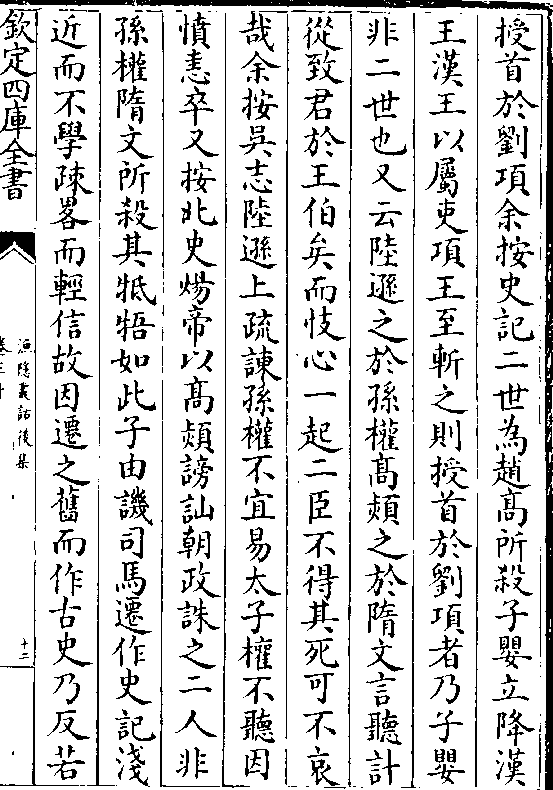 授首於劉項余按史記二世為趙髙所殺子嬰立降漢
王漢王以屬吏項王至斬之則授首於劉項者乃子嬰
非二世也又云陸遜之於孫權髙熲之於隋文言聽計
從致君於王伯矣而忮心一起二臣不得其死可不哀
哉余按吳志陸遜上疏諫孫權不宜易太子權不聽因
憤恚卒又按北史煬帝以髙熲謗訕朝政誅之二人非
孫權隋文所殺其牴牾如此子由譏司馬遷作史記淺
近而不學疎畧而輕信故因遷之舊而作古史乃反若
欽定四庫全書
漁隱叢話後集
卷三十
十二